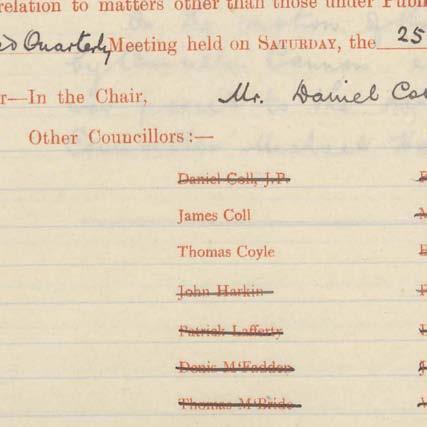 relation to matters other than those under
Quarterly Meeting held on SATURDAY, the 25
r—In the Chair, Mr. Daniel
Other Councillors:—
Daniel Coll, J.P.
James Coll
Thomas Coyle
John Harkin
Patrick Lafferty
Denis M'Fadden
Thomas M'Bride